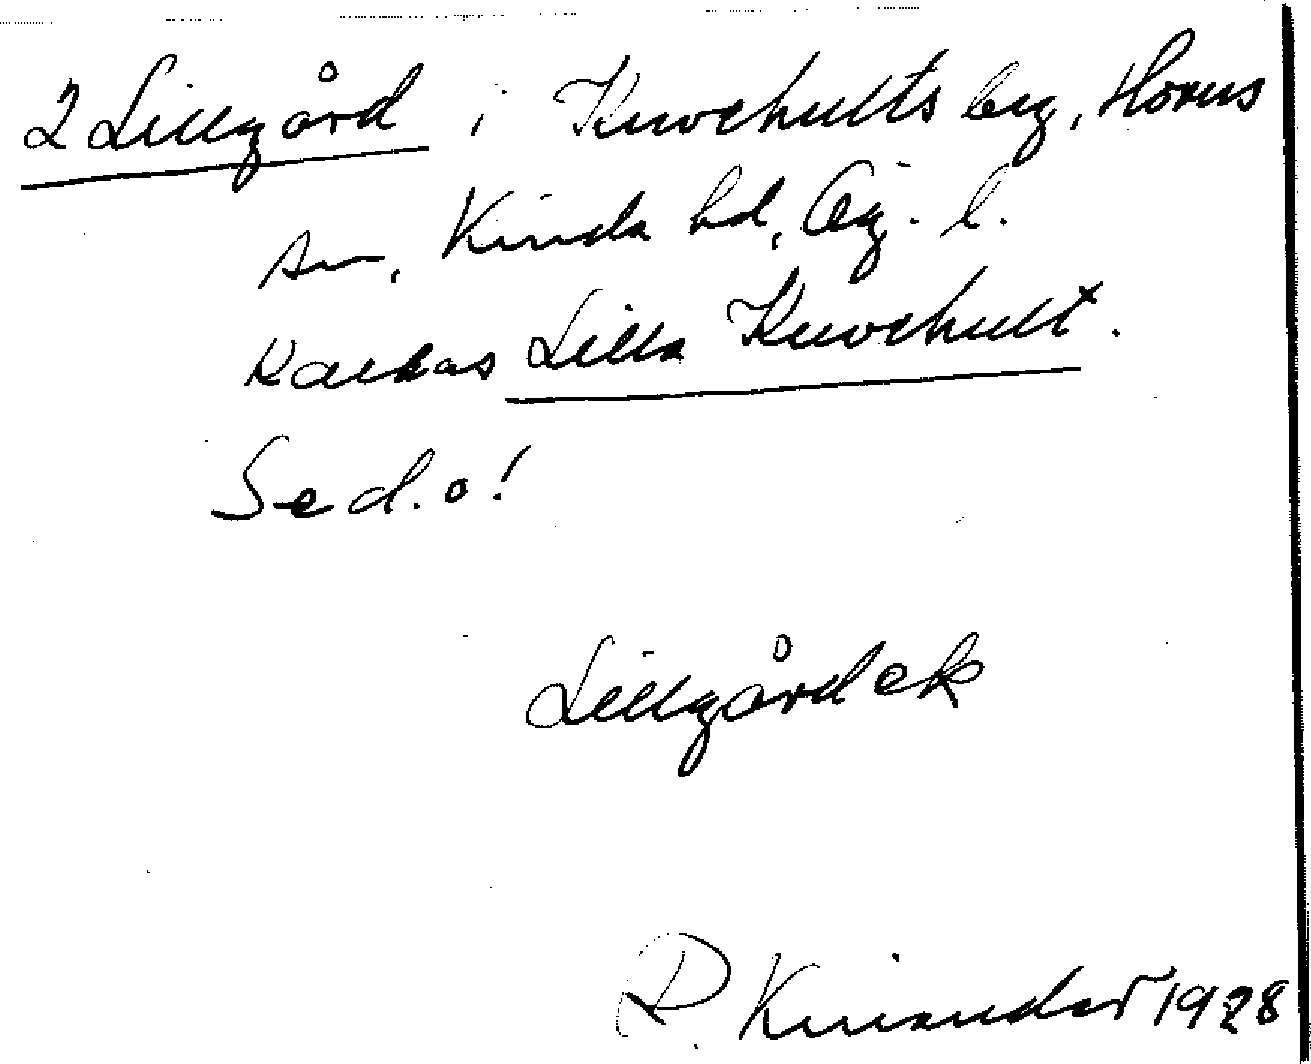 2 Lillgård i Kuvehults by, Horns
sn, Kinda hd, Ög. l.
Kallas Lilla Kuvehult.
Se d.o!
Lillgård ek
R. Kinander 1928